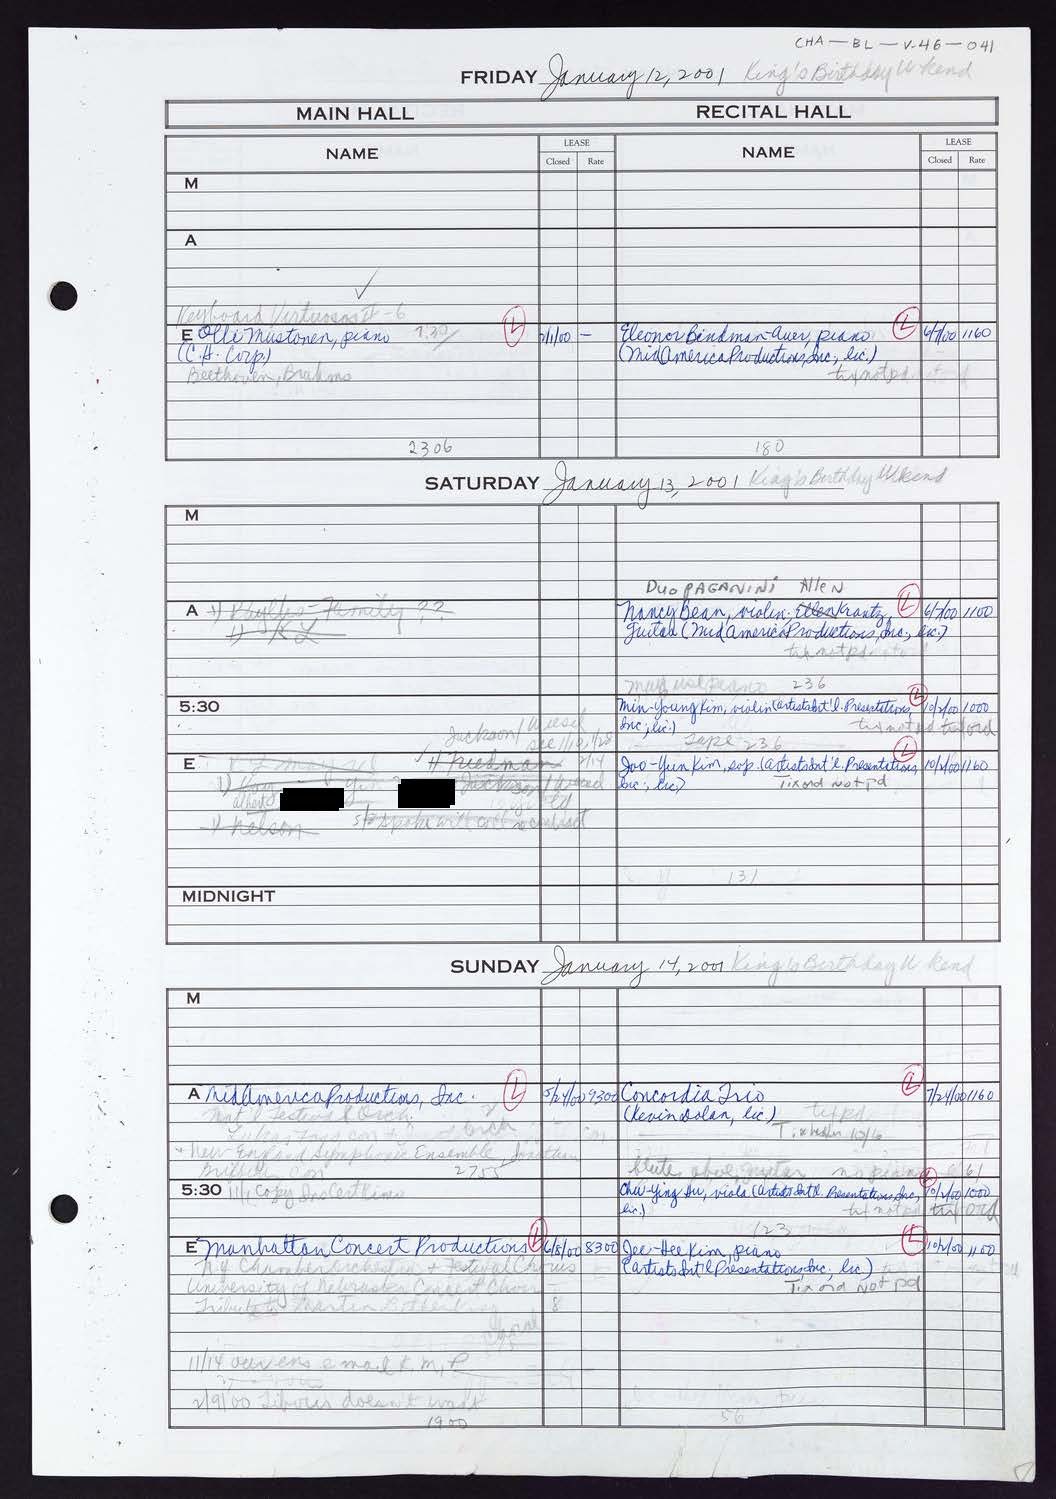 CHA-BL-V.46-041
FRIDAY January 12, 2001 King's Birthday Wkend
MAIN HALL RECITAL HALL
NAME LEASE NAME LEASE
Closed Rate Closed Rate
M
A
Keyboard Virtuosos II-6
E Olli Mustonen, piano 7:30 L – Eleonor Bindman-Auer, piano L 6/7/00 1160
(C.H. Corp.) (MidAmerica Productions, Inc., lic.)
Beethoven, Brahms tix not pd
2306 180
SATURDAY January 13, 2001 King's Birthday Wkend
M
Duo PAGANINI Allen
A Phyllis-Family ?? Nancy Bean, violin. Ellen Krantz, L 6/7/00 1100
Guitar (MidAmerica Productions, Inc., lic.)
tix not pd
may use piano 236
5:30 Min-Young Kim, violin (Artists Int'l. Presentations L 10/2/00 1000
Inc., lic.) tix not pd tix ord
Jackson/Wiesel
236
E H Friedman 2/14 Joo-Yun Kim, sop. (Artists Int'l. Presentations, L 10/2/00 1160
Inc., lic.) Tix ord not pd
Nelson spoke will call
131
MIDNIGHT
SUNDAY January 14, 2001 King's Birthday Wkend
M
A MidAmerica Productions, Inc. L 5/24/00 9300 Concordia Trio L 7/24/00 1160
(Kevin Dolan, lic.)
New England Symphonic Ensemble, Jonathan
2755 no piano 61
5:30 Chiu-Ying Hu, viola (Artists Int'l. Presentations, Inc., L 10/2/00 1000
lic.) tix not pd tix ord
123
E Manhattan Concert Productions L 6/8/00 8300 Jee-Hee Kim, piano L 10/2/00 1100
NY Chamber Orchestra + Festival Chorus (Artists Int'l Presentations, Inc., lic.)
University of Nebraska Concert Choir Tix ord not pd
Tribute to Martin Luther King 8
11/14 email K.M.P.
2/9/00 doesn't want
1900 56